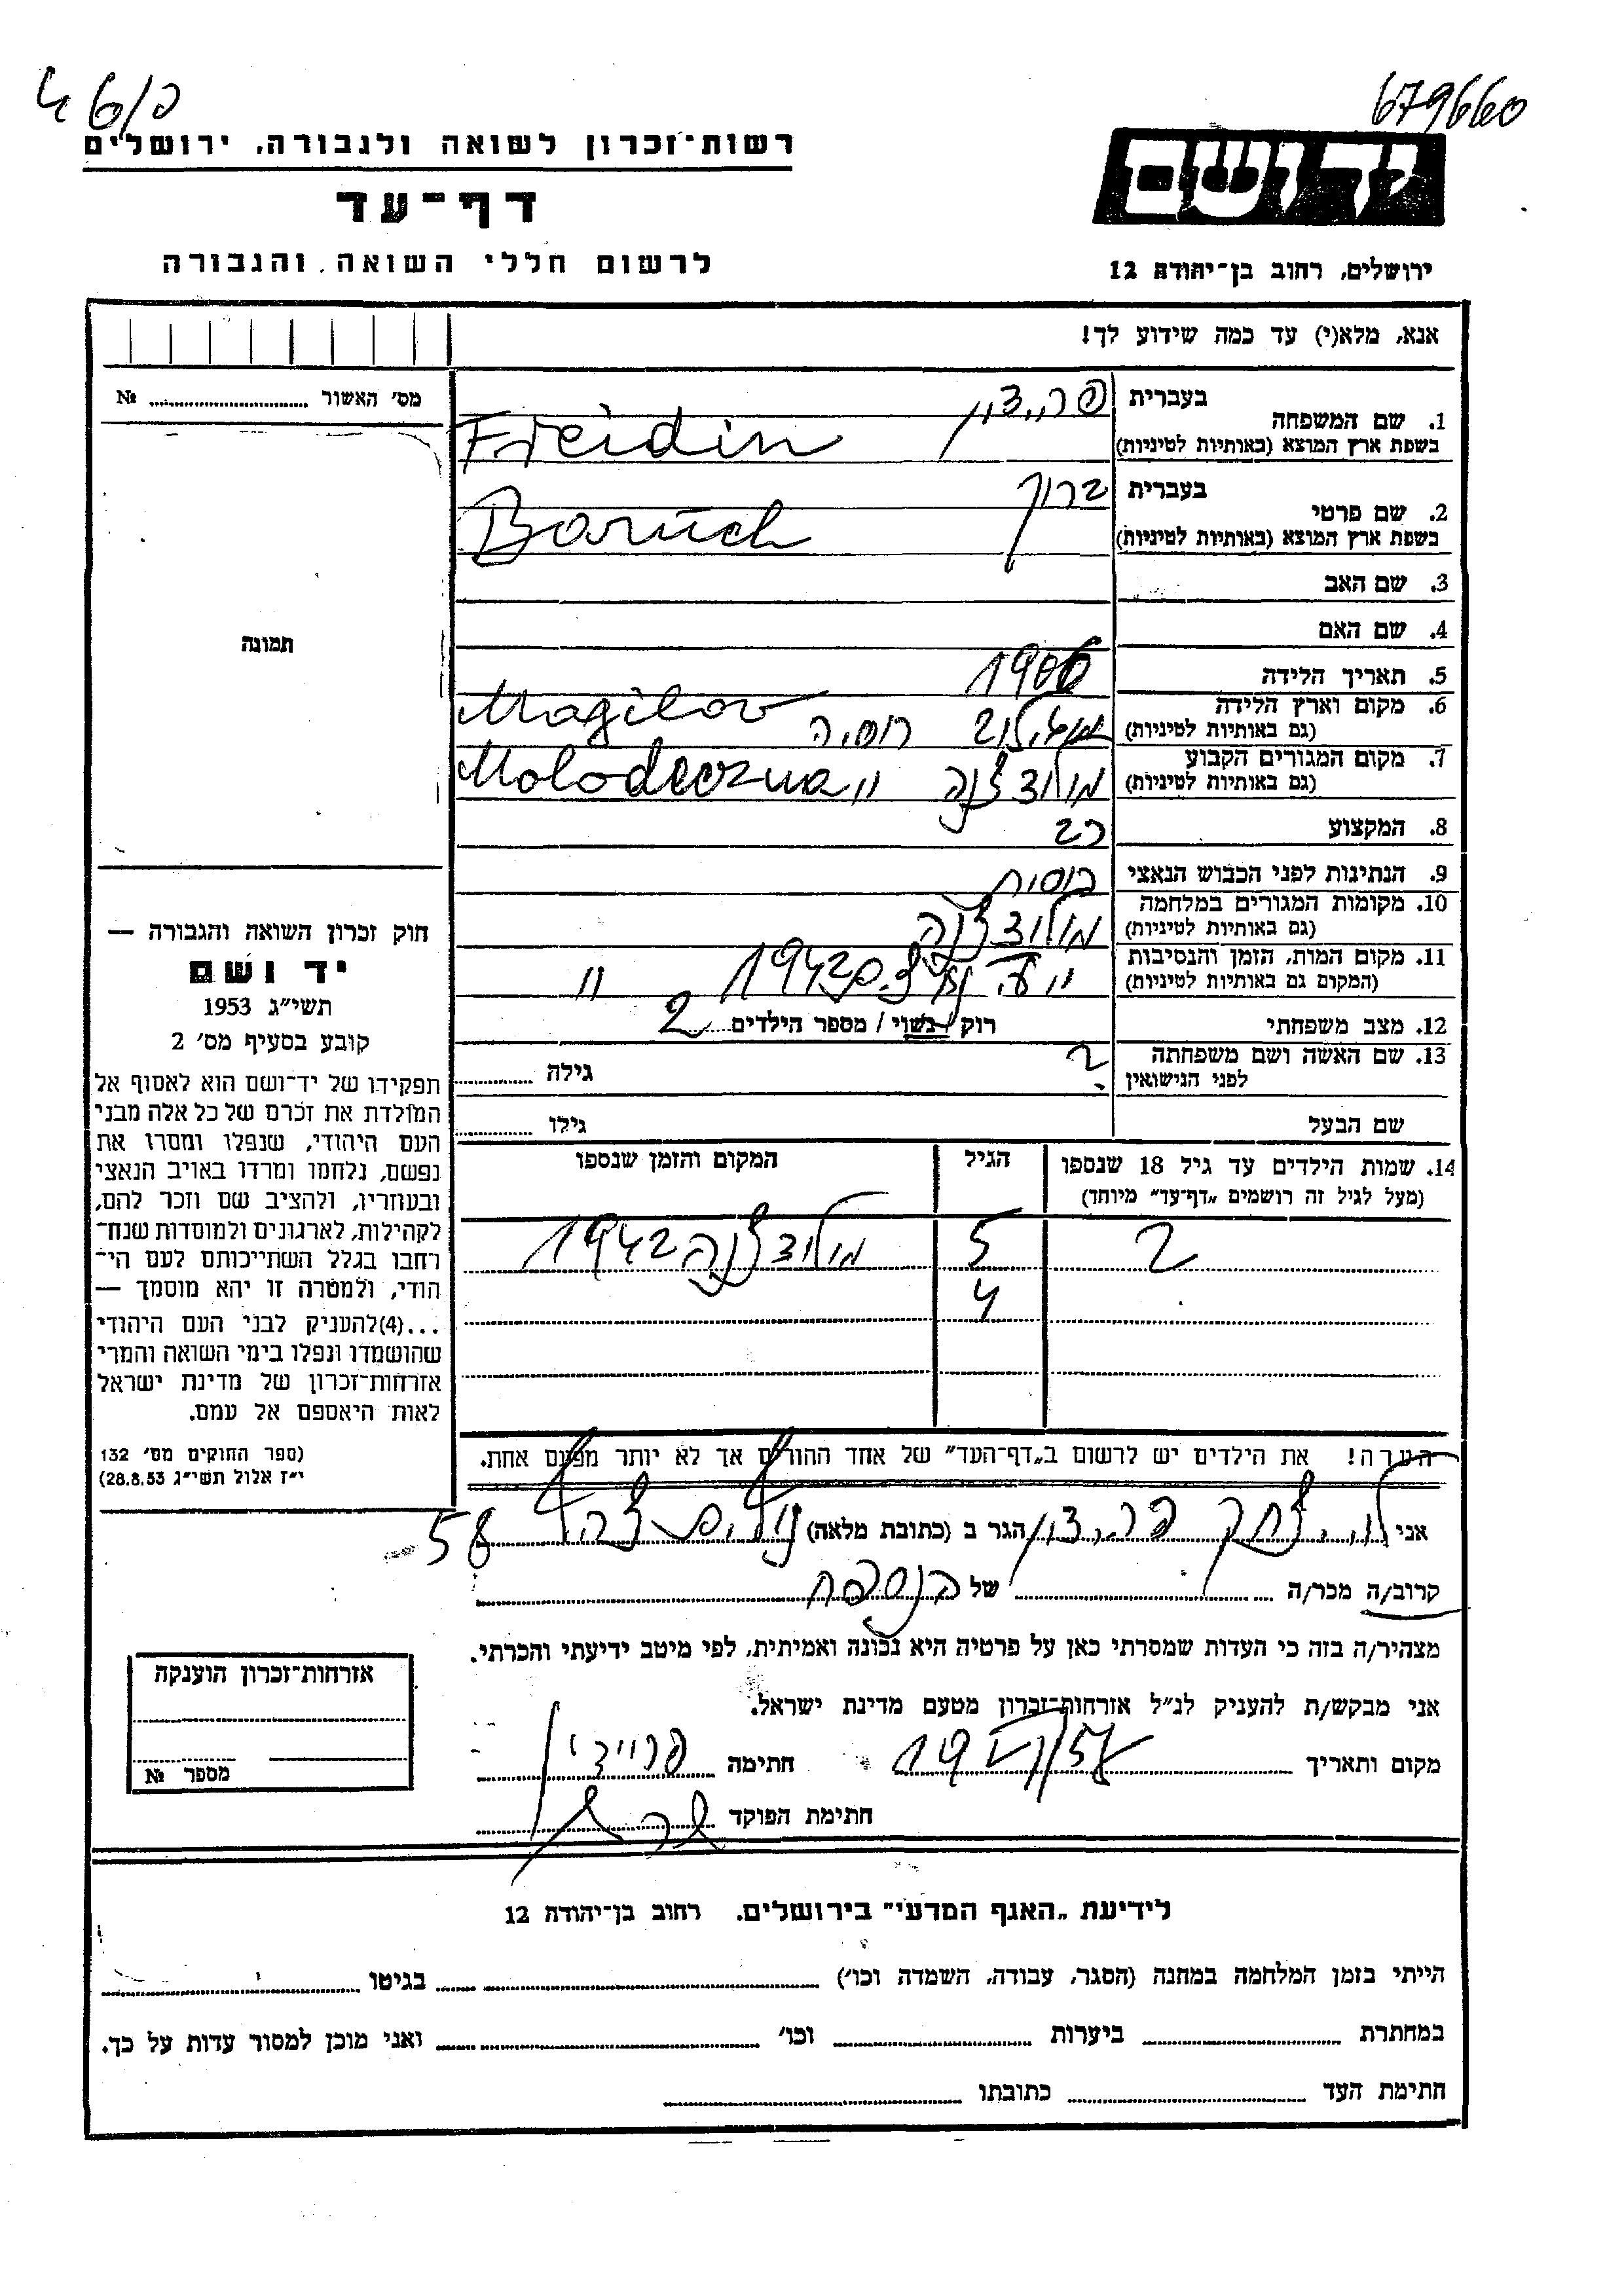 46/כ
679660
רשות־זכרון לשואה ולגבורה, ירושלים
דף־עד
לרשום חללי השואה והגבורה
יד ושם
ירושלים, רחוב בן־יהודה 12
אנא, מלא(י) עד כמה שידוע לך!
מס׳ האשור № 
1. שם המשפחה בעברית פריידין
בשפת ארץ המוצא (באותיות לטיניות) Freidin
2. שם פרטי בעברית ברוך
בשפת ארץ המוצא (באותיות לטיניות) Baruch
3. שם האב
4. שם האם
תמונה
5. תאריך הלידה 1906
6. מקום וארץ הלידה (גם באותיות לטיניות) מגילוב רוסיה Magilov
7. מקום המגורים הקבוע (גם באותיות לטיניות) מולודצ'נה " Molodeczna
8. המקצוע רב
9. הנתינות לפני הכבוש הנאצי רוסית
10. מקומות המגורים במלחמה (גם באותיות לטיניות) מולודצ'נה
11. מקום המות, הזמן והנסיבות (המקום גם באותיות לטיניות) 1942 "
12. מצב משפחתי רוק / נשוי / מספר הילדים 2
13. שם האשה ושם משפחתה לפני הנישואין ? גילה
שם הבעל גילו
14. שמות הילדים עד גיל 18 שנספו הגיל המקום והזמן שנספו
(מעל לגיל זה רושמים „דף־עד” מיוחד)
2 5 מולודצ'נה 1942
4
חוק זכרון השואה והגבורה —
יד ושם
תשי״ג 1953
קובע בסעיף מס׳ 2
תפקידו של יד־ושם הוא לאסוף אל
המולדת את זכרם של כל אלה מבני
העם היהודי, שנפלו ומסרו את
נפשם, נלחמו ומרדו באויב הנאצי
ובעוזריו, ולהציב שם וזכר להם,
לקהילות, לארגונים ולמוסדות שנח־
רחבו בגלל השתייכותם לעם הי־
הודי, ולמטרה זו יהא מוסמך —
...(4)להעניק לבני העם היהודי
שהושמדו ונפלו בימי השואה והמרי
אזרחות־זכרון של מדינת ישראל
לאות היאספם אל עמם.
(ספר החוקים מס׳ 132
י״ז אלול תשי״ג 28.8.53)
הערה! את הילדים יש לרשום ב„דף־העד” של אחד ההורים אך לא יותר מפעם אחת.
אני יצחק פריידין הגר ב (כתובת מלאה) 58
קרוב/ה מכר/ה של הנספה
מצהיר/ה בזה כי העדות שמסרתי כאן על פרטיה היא נכונה ואמיתית, לפי מיטב ידיעתי והכרתי.
אני מבקש/ת להעניק לנ״ל אזרחות־זכרון מטעם מדינת ישראל.
מקום ותאריך חתימה פריידין
חתימת הפוקד
אזרחות־זכרון הוענקה
מספר №
לידיעת „האגף המדעי” בירושלים. רחוב בן־יהודה 12
הייתי בזמן המלחמה במחנה (הסגר, עבודה, השמדה וכו׳) בגיטו
במחתרת ביערות וכו׳ ואני מוכן למסור עדות על כך.
חתימת העד כתובתו